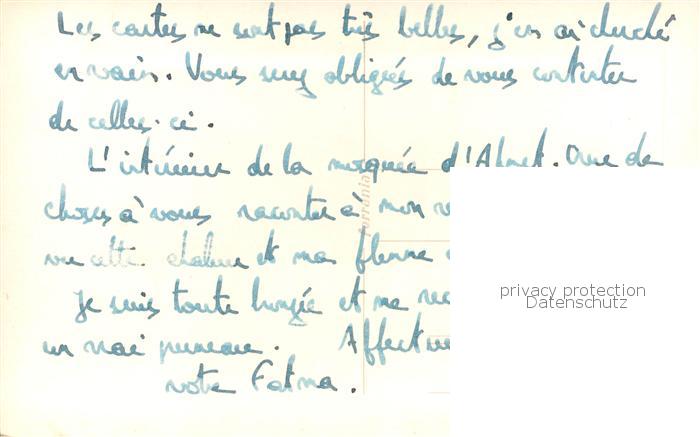 Les cartes ne sont pas très belles, j'en ai cherché
en vain. Vous serez obligées de vous contenter
de celles-ci.
L'intérieur de la mosquée d'Ahmet. Que de
choses à vous raconter à mon
vu cette chaleur et ma flemme
privacy protection
Datenschutz
Je suis toute bronzée et me
un vrai pruneau. Affect
votre Fatma.
Ferrania